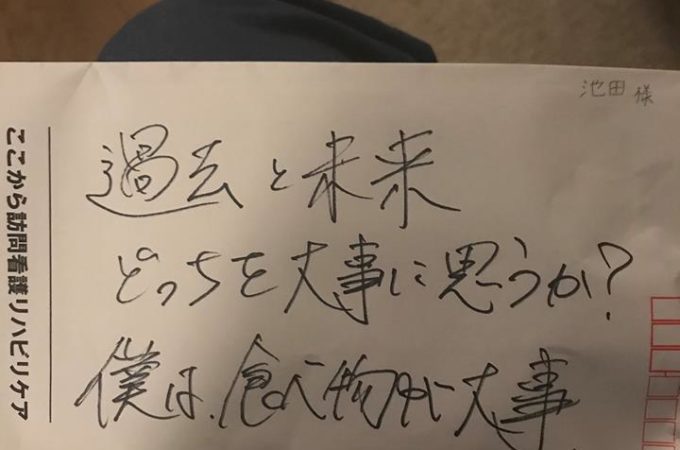 池田 様
過去と未来
どっちを大事に思うか?
僕は、食べ物が大事
ここから訪問看護リハビリケア